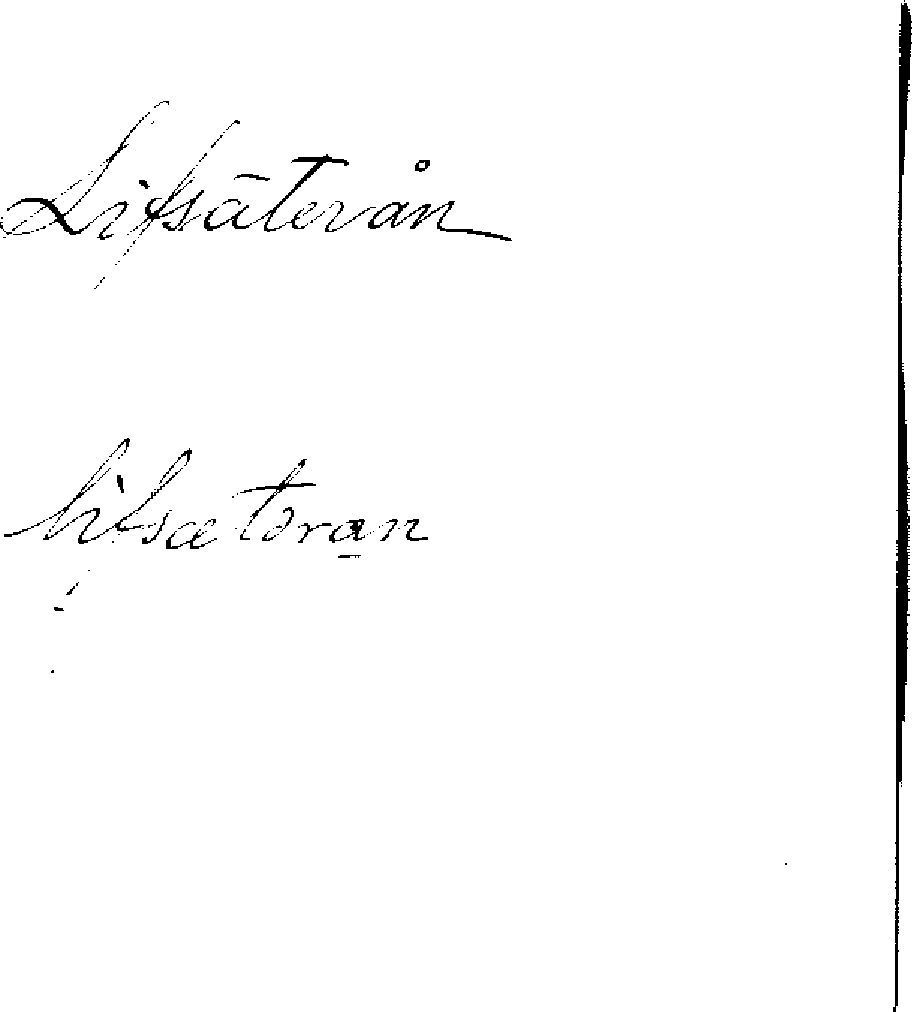 Lifsäterån
lifsætəra̲n